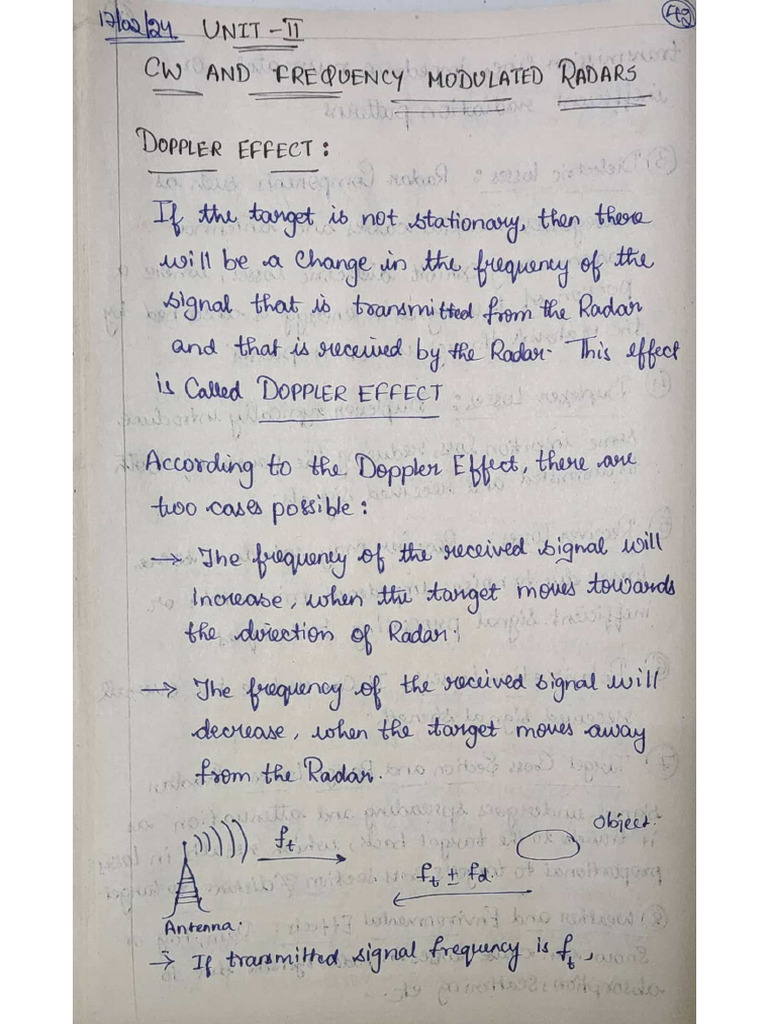 17/02/24 UNIT - II
49
CW AND FREQUENCY MODULATED RADARS
DOPPLER EFFECT :
If the target is not stationary, then there
will be a change in the frequency of the
signal that is transmitted from the Radar
and that is received by the Radar. This effect
is Called DOPPLER EFFECT
According to the Doppler Effect, there are
two cases possible :
→ The frequency of the received signal will
increase, when the target moves towards
the direction of Radar.
→ The frequency of the received signal will
decrease, when the target moves away
from the Radar.
f_t
object.
f_t ± f_d.
Antenna.
→ If transmitted signal frequency is f_t,